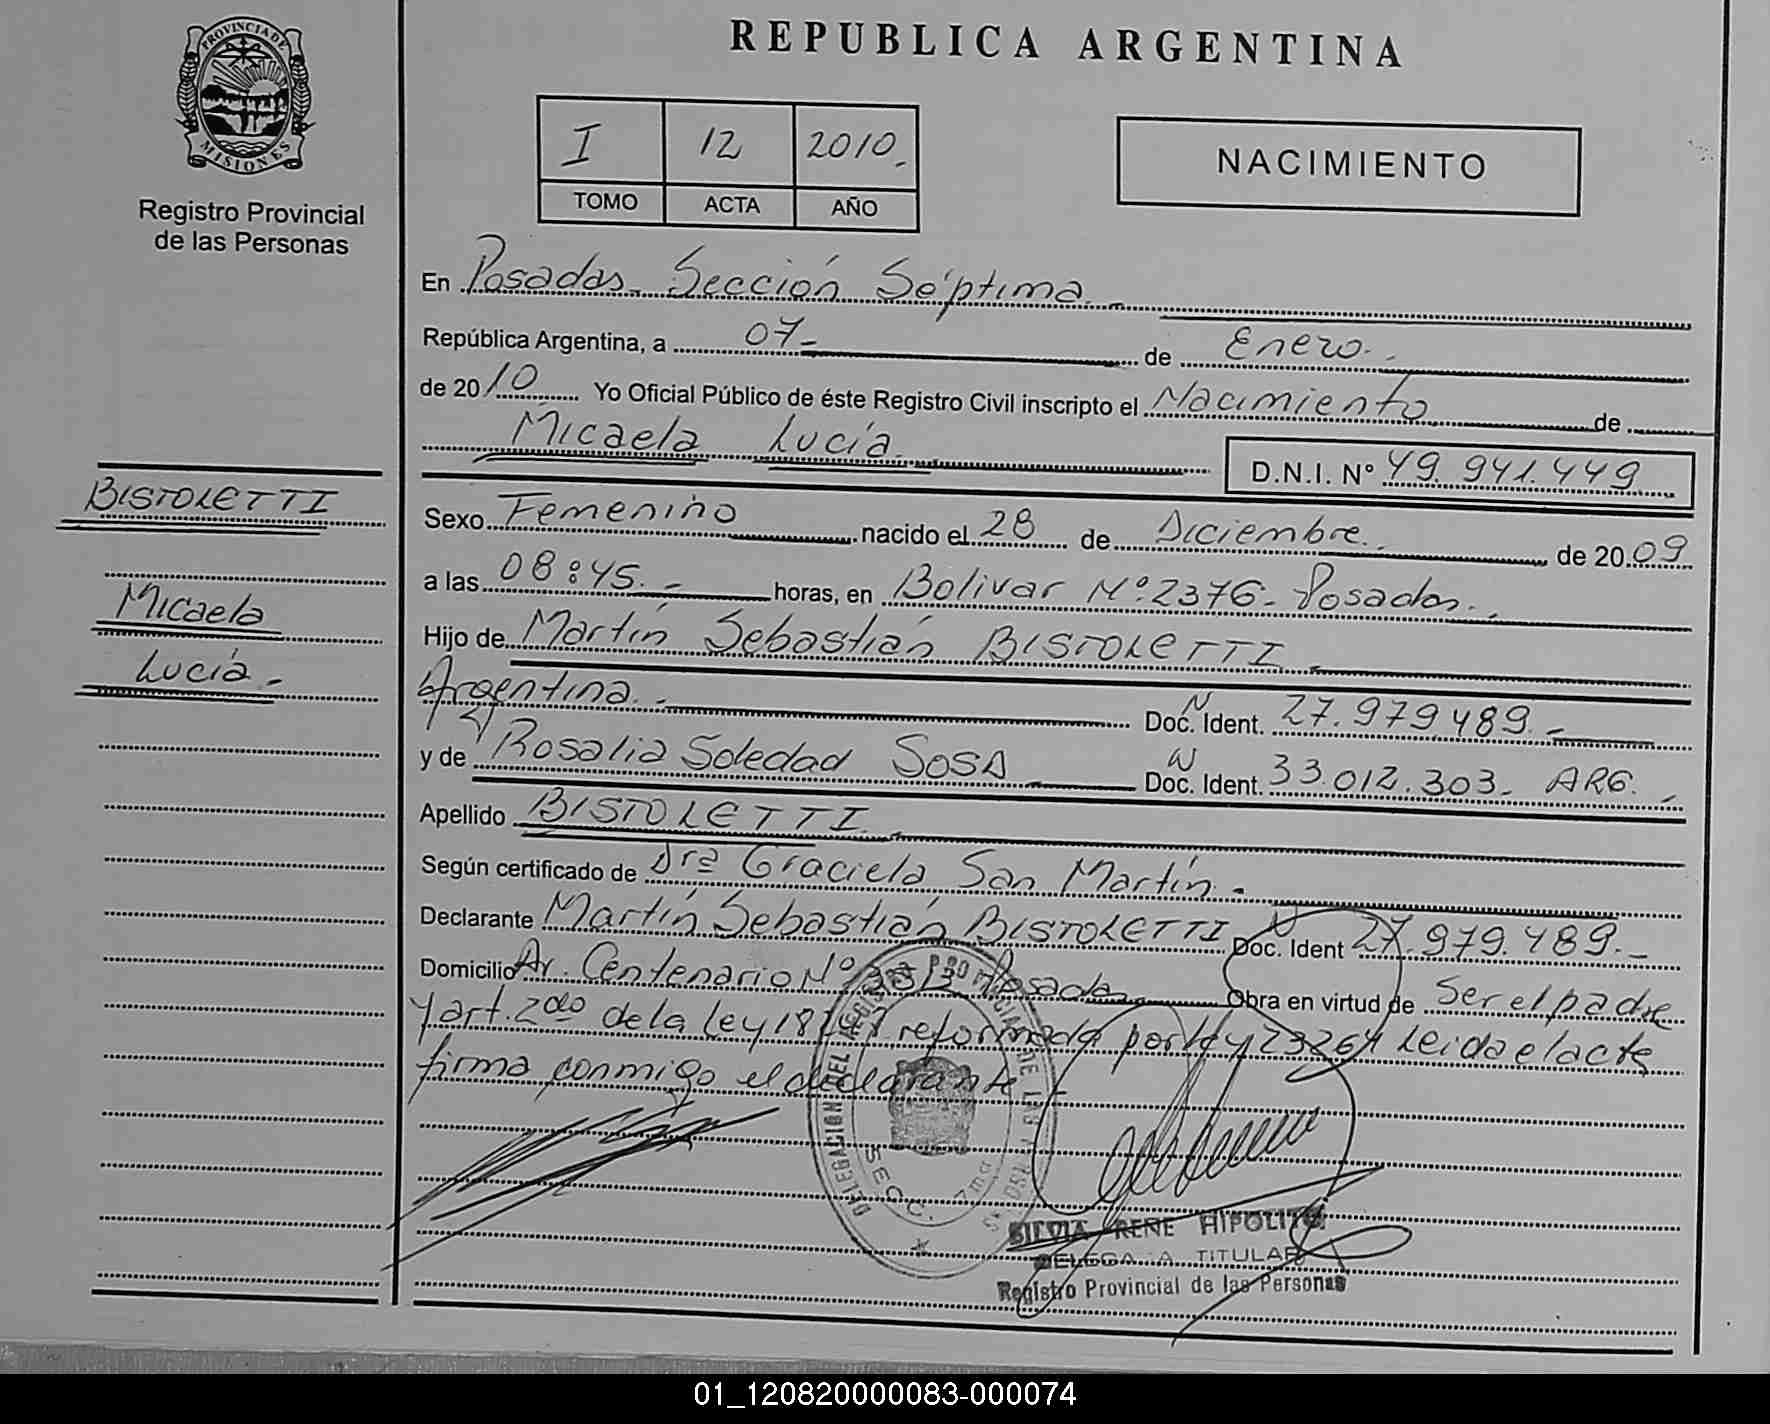 PROVINCIA DE
MISIONES
Registro Provincial
de las Personas
BISTOLETTI
Micaela
Lucía.-
REPUBLICA ARGENTINA
I 12 2010.
TOMO ACTA AÑO
NACIMIENTO
En Posadas. Sección Séptima.-
República Argentina, a 07- de Enero.-
de 20 10 Yo Oficial Público de éste Registro Civil inscripto el Nacimiento de
Micaela Lucía. D.N.I. N° 49.941.449
Sexo Femenino nacido el 28 de Diciembre. de 20 09
a las 08:45.- horas, en Bolivar N°.2376- Posadas.
Hijo de Martín Sebastián BISTOLETTI.
Argentina.- Doc. N Ident. 27.979.489.-
y de Rosalia Soledad SOSA Doc. N Ident. 33.012.303- ARG.-
Apellido BISTOLETTI.
Según certificado de Dra Graciela San Martín.-
Declarante Martín Sebastián BISTOLETTI Doc. N Ident 27.979.489.-
Domicilio Av. Centenario N° Posadas Obra en virtud de Ser el padre
y art. 2do de la Ley reformada por Ley 23264 Leida el acta
firma conmigo el declarante
DELEGACIÓN DEL REGISTRO PROVINCIAL DE LAS PERSONAS
SECC. 7ma
SILVIA RENE HIPOLITO
DELEGADA TITULAR
Registro Provincial de las Personas
01_120820000083-000074